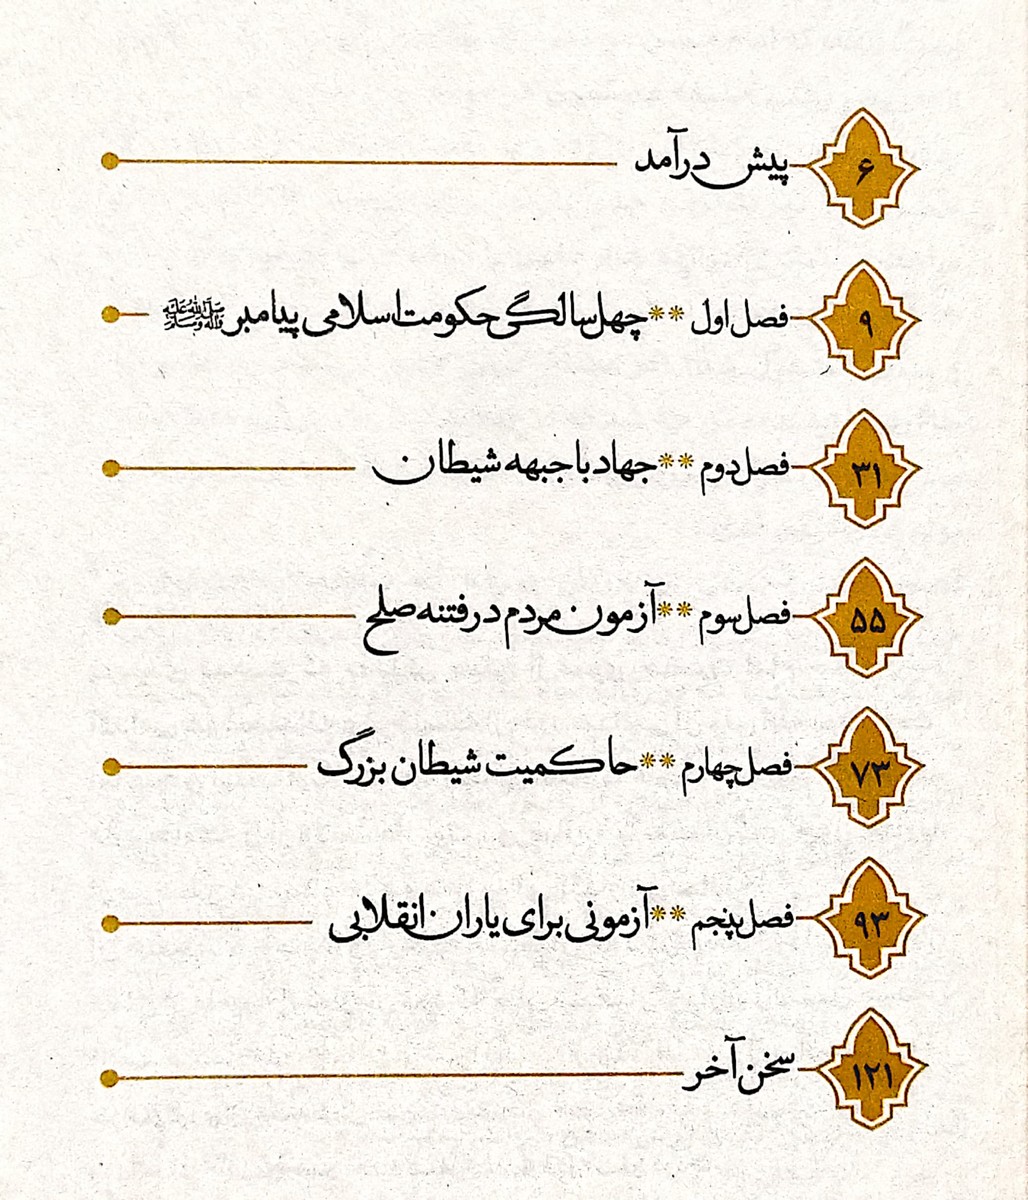 ۶ پیش درآمد
۹ فصل اول ** چهل سالگی حکومت اسلامی پیامبر ﷺ
۳۱ فصل دوم ** جهاد با جبهه شیطان
۵۵ فصل سوم ** آزمون مردم در فتنه صلح
۷۳ فصل چهارم ** حاکمیت شیطان بزرگ
۹۳ فصل پنجم ** آزمونی برای یاران انقلابی
۱۲۱ سخن آخر